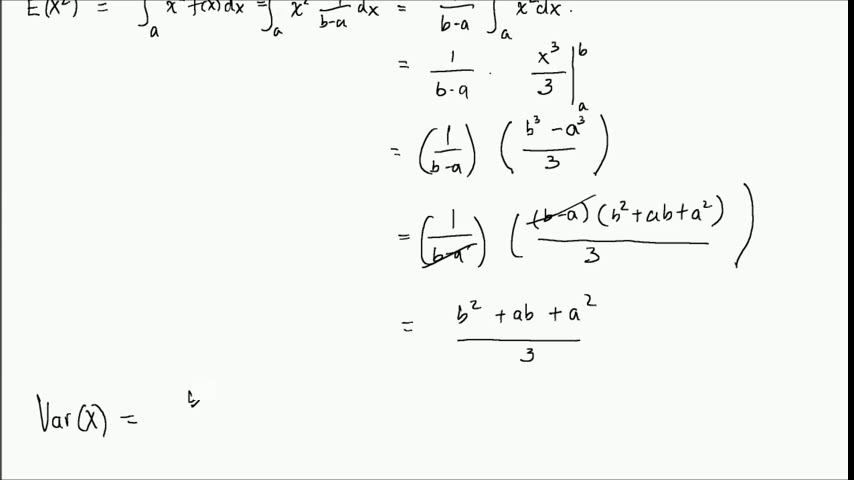 E(X²) = ∫ₐ x² f(x)dx = ∫ₐ x² 1/(b-a) dx = 1/(b-a) ∫ₐ x² dx.
= 1/(b-a) · x³/3 |ₐᵇ
= (1/(b-a)) ((b³ - a³)/3)
= (1/(b-a)) ((b-a)(b² + ab + a²)/3)
= (b² + ab + a²)/3
Var(X) =